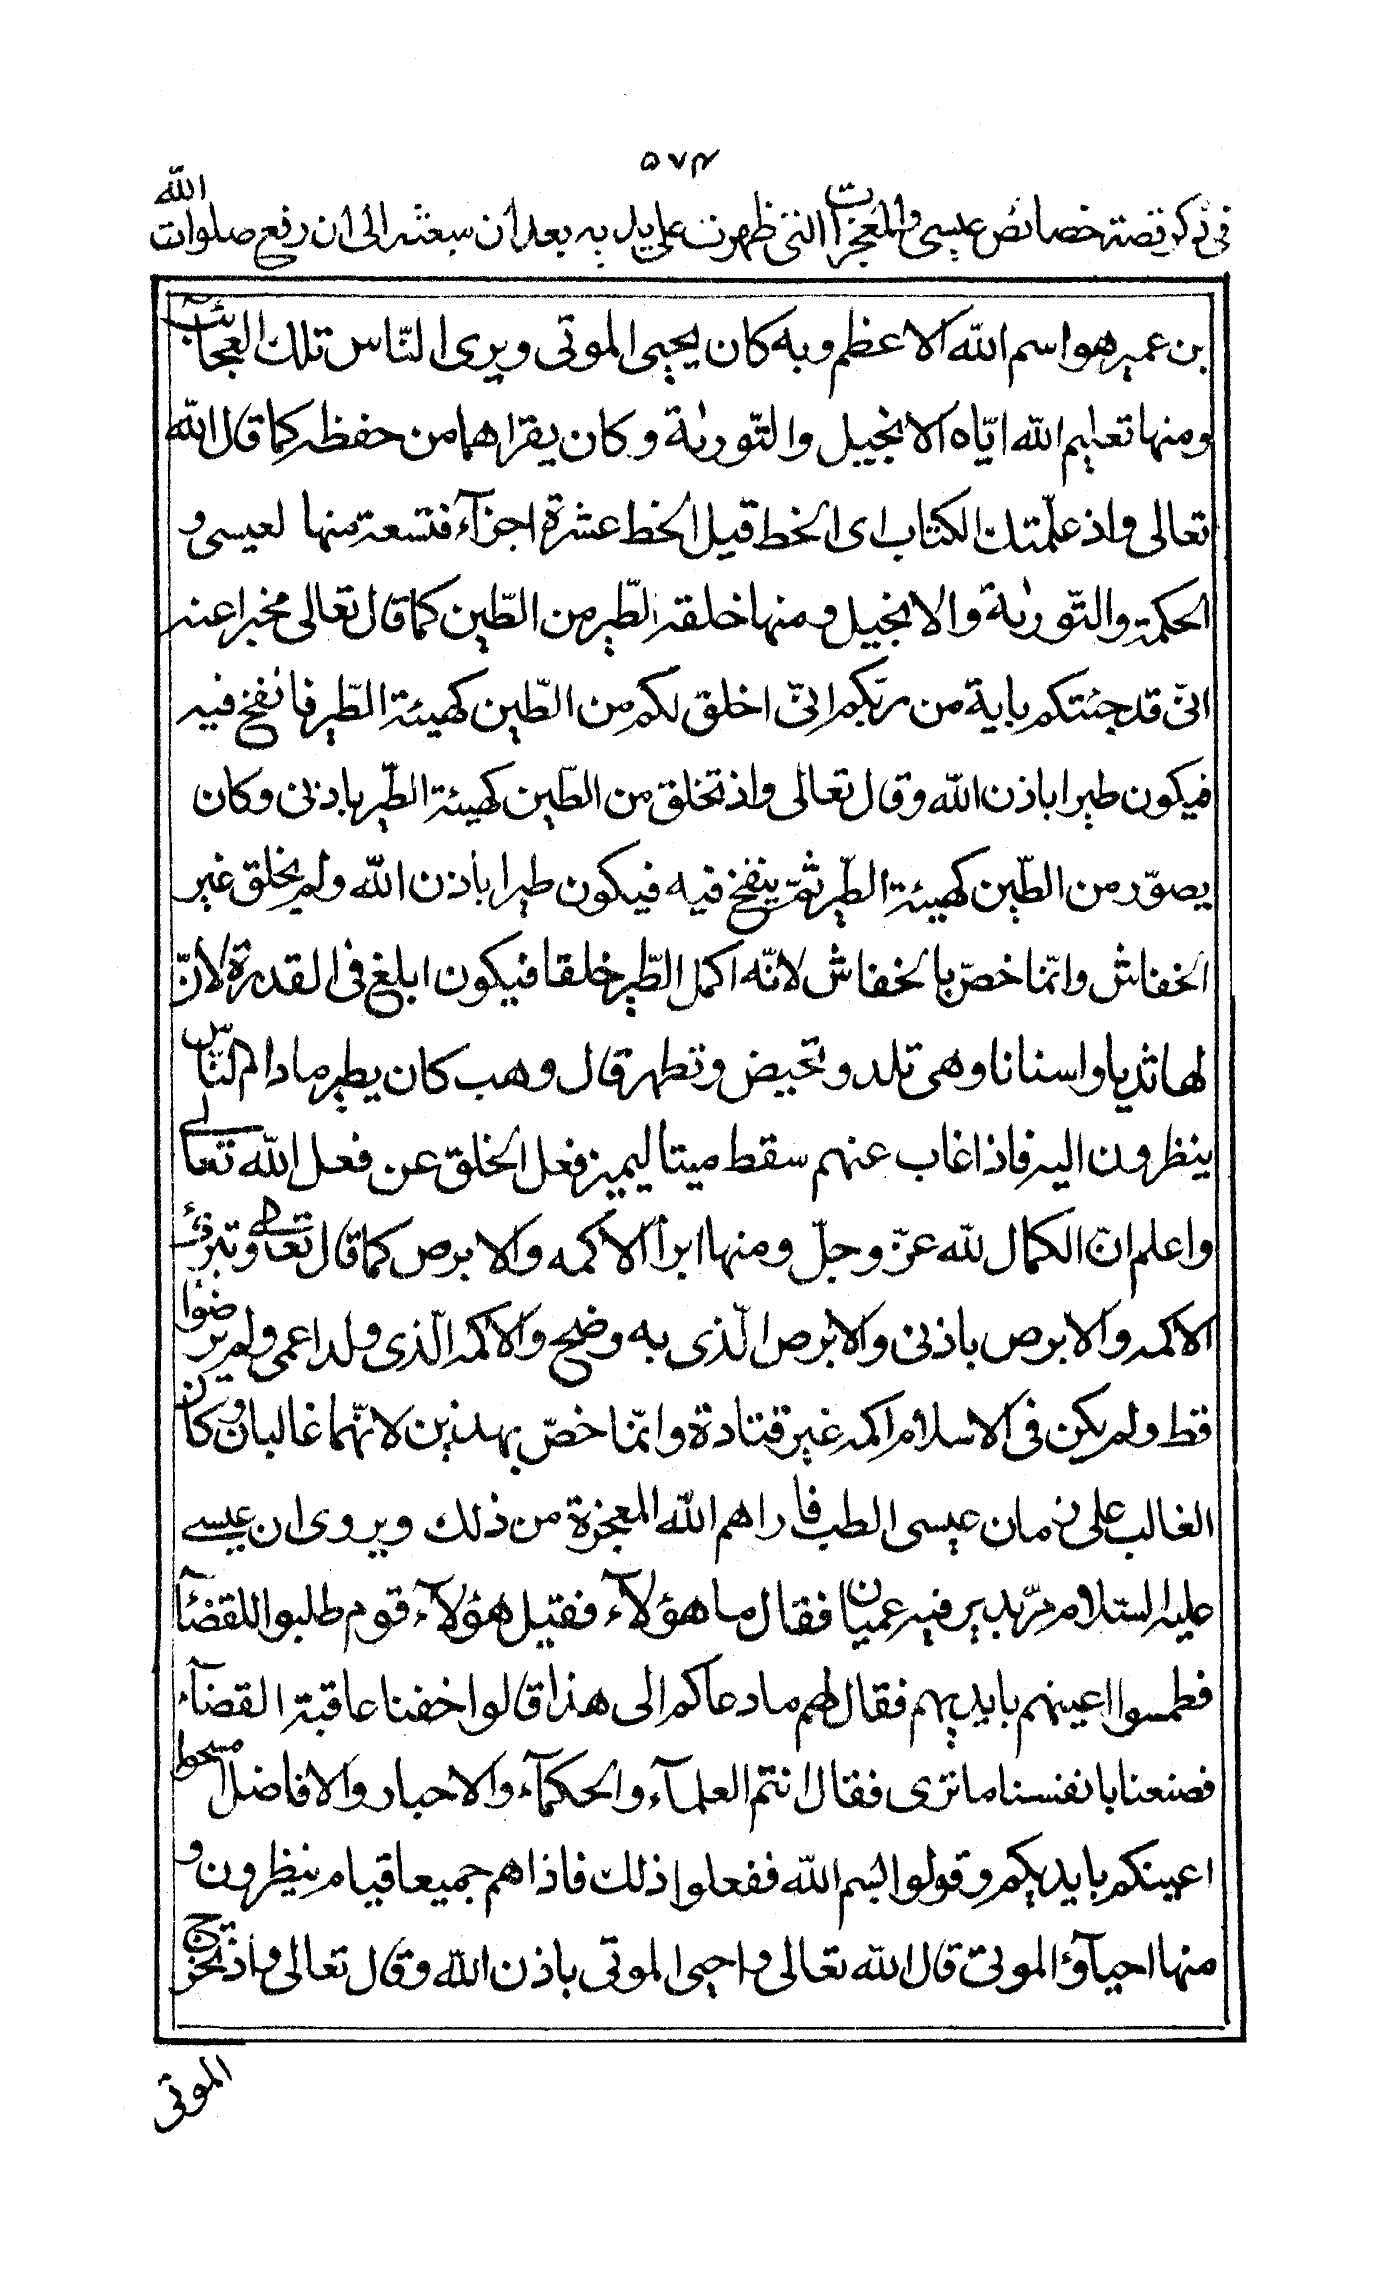 ۵۷۴
في ذكر قصة خصائص عيسى والمعجزات التى ظهرت على يديه بعد أن بعثه الى ان رفع صلوات الله
بن عمير هو اسم الله الاعظم وبه كان يحيى الموتى ويرى النّاس تلك العجائب
ومنها تعليم الله ايّاه الانجيل والتّورية وكان يقراهما من حفظه كما قال الله
تعالى واذ علّمتك الكتاب اى الخط قيل الخط عشرة اجزآء فتسعة منها لعيسى و
الحكمة والتّورية والانجيل ومنها خلقه الطّير من الطّين كما قال تعالى مخبرا عنه
انّى قد جئتكم باية من ربّكم انىّ اخلق لكم من الطّين كهيئة الطّير فانفخ فيه
فيكون طيرا باذن الله وقال تعالى واذ تخلق من الطّين كهيئة الطّير باذنى وكان
يصوّر من الطّين كهيئة الطّير ثمّ ينفخ فيه فيكون طيرا باذن الله ولم يخلق غير
الخفاش وانّما خصّ بالخفاش لانّه اكمل الطّير خلقا فيكون ابلغ فى القدرة لأنّ
لها ثديا واسنانا وهى تلد وتحيض وتطهر قال وهب كان يطير مادام النّاس
ينظرون اليه فاذا غاب عنهم سقط ميتا ليميز فعل الخلق عن فعل الله تعالى
واعلم انّ الكمال لله عزّ وجلّ ومنها ابرأ الاكمه والابرص كما قال تعالى وتبرئ
الاكمه والابرص باذنى والابرص الّذى به وضح والاكمه الّذى ولد اعمى ولم ير ضوا
قط ولم يكن فى الاسلام اكمه غير قتادة وانّما خصّ بهذين لانّهما غالبان وكان
الغالب على زمان عيسى الطب فاراهم الله المعجزة من ذلك ويروى ان عيسى
عليه السّلام مرّ بدير فيه عميان فقال ما هؤلآء فقيل هؤلآء قوم طلبوا للقضآء
فطمسوا اعينهم بايديهم فقال لهم ما دعاكم الى هذا قالوا خفنا عاقبة القضآء
فصنعنا بانفسنا ما ترى فقال انتم العلمآء والحكمآء والاحبار والافاضل امسحوا
اعينكم بايديكم وقولوا بسم الله ففعلوا ذلك فاذا هم جميعا قيام ينظرون و
منها احيآؤ الموتى قال الله تعالى واحيى الموتى باذن الله وقال تعالى واذ تخرج
الموتى